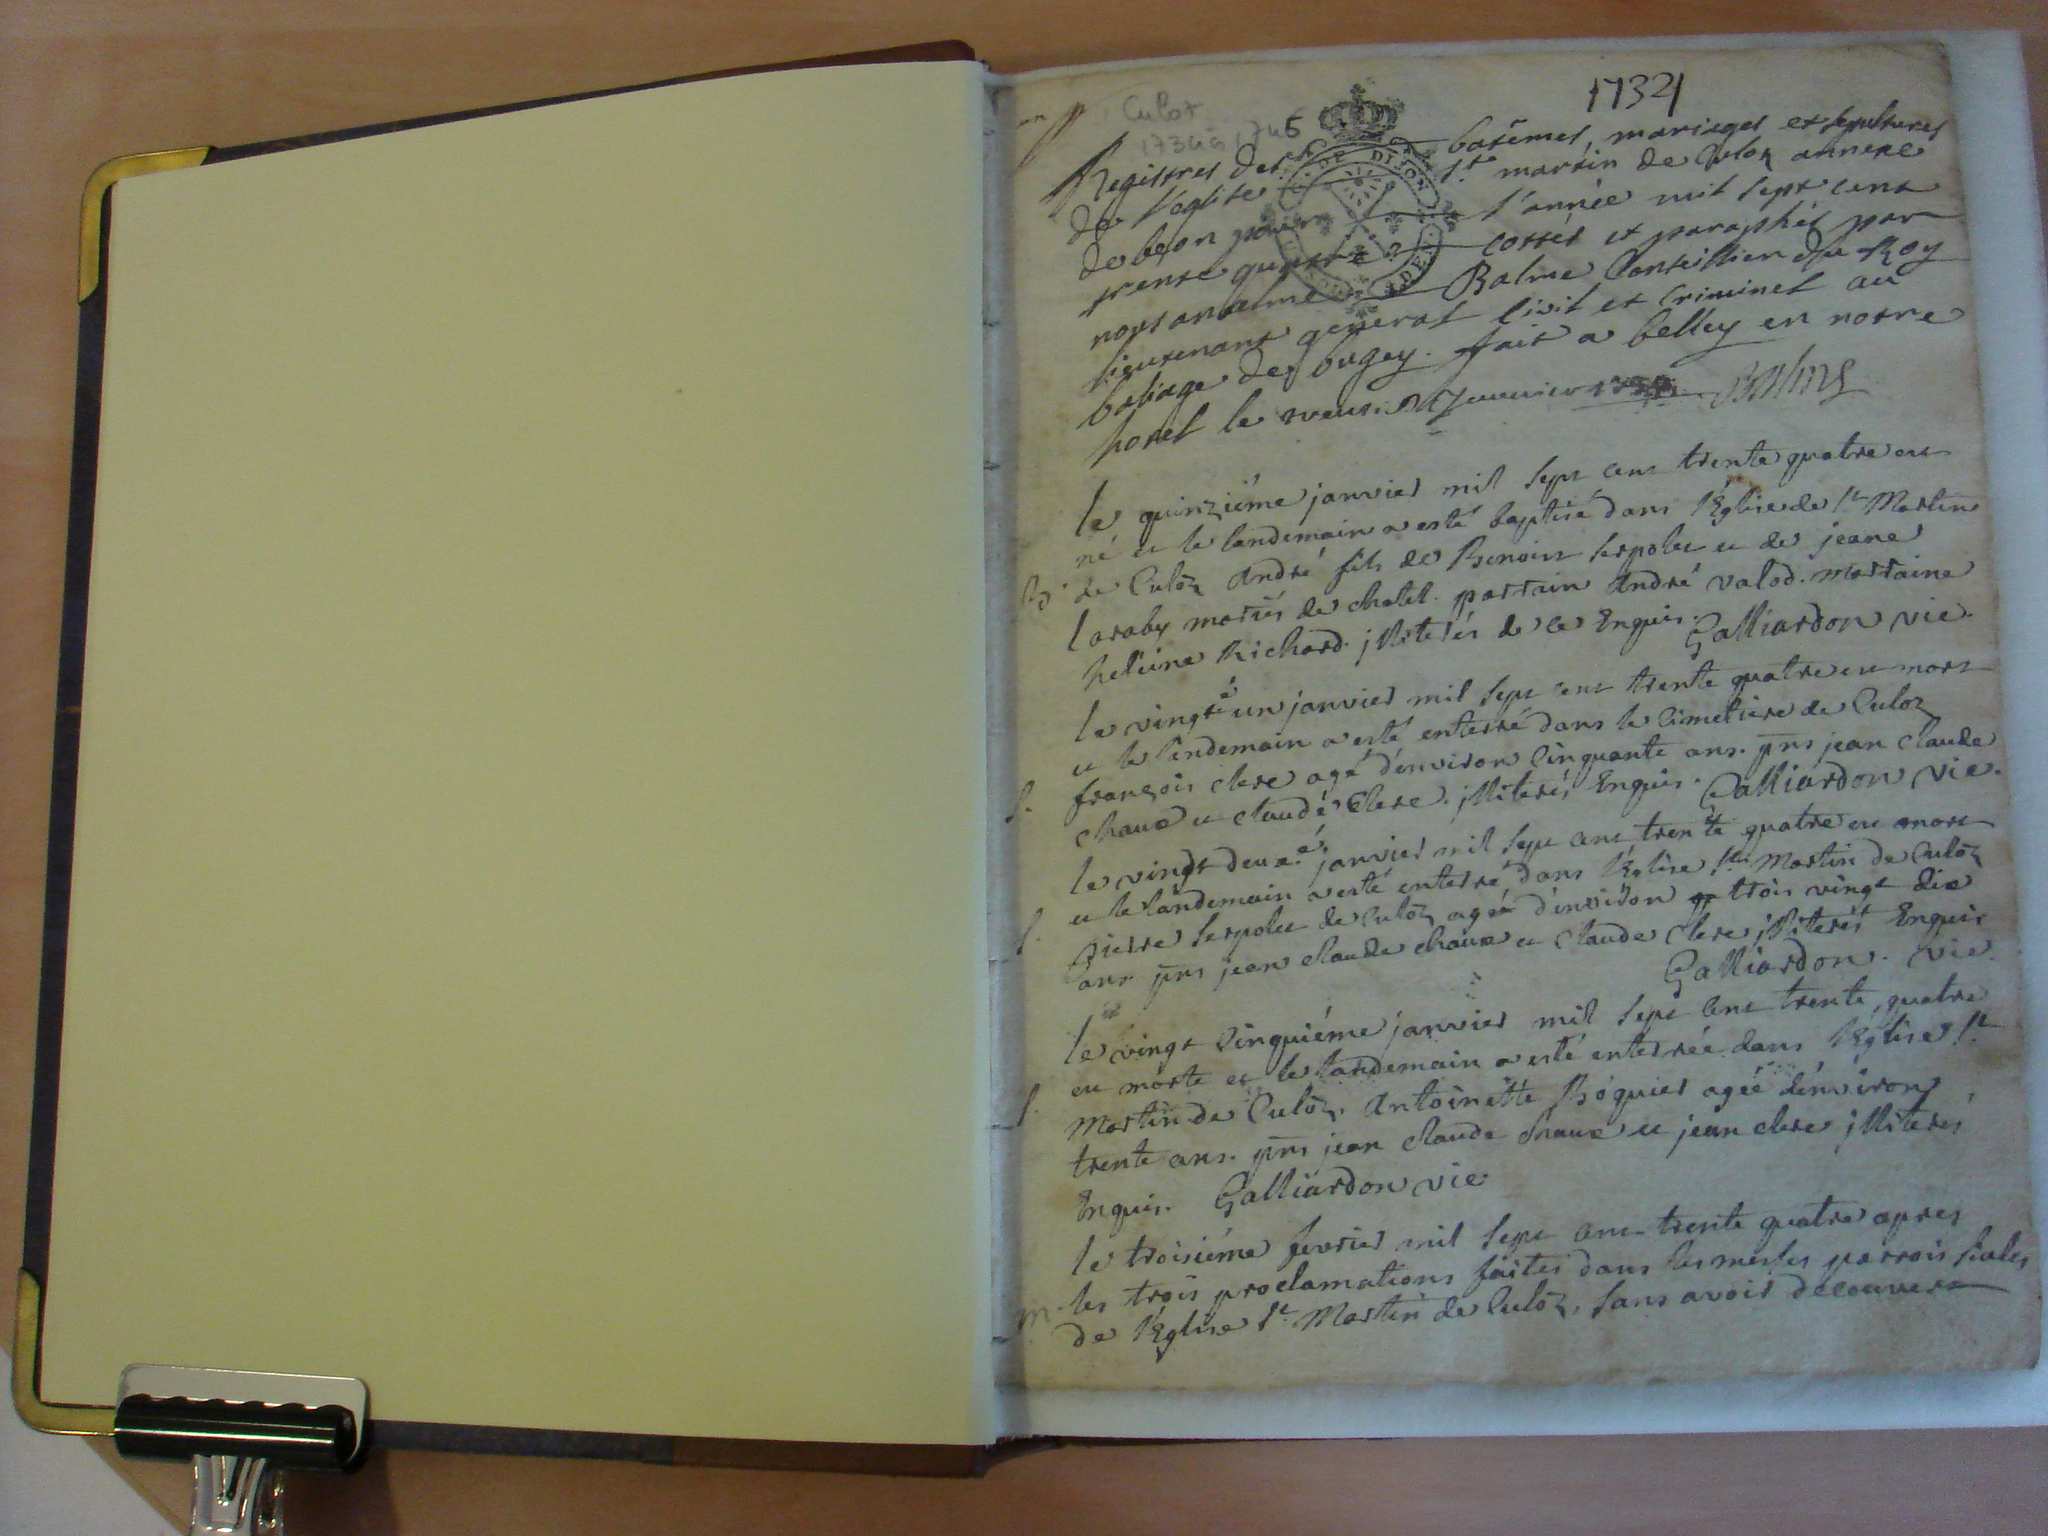 1734
Culoz
1734 à 1745
Registres des batêmes, mariages et sepultures
de l'eglise st martin de Culoz annexe
de beon pour l'année mil sept cent
trente quatre cottés et paraphés par
nous antelme Balme Conseillier du Roy
lieutenant general Civil et Criminel au
baliage de bugey. fait a belley en notre
hotel le janvier 1734 Balme
GE DE DIJON
le quinziéme janvier mil sept cent trente quatre est
né et le landemain a esté baptisé dans l'Eglise de st Martin
B. de Culoz André fils de Benoist serpolet et de jeane
laraby mariés de chatel. parrain André valod. marraine
heleine Richard. jlliterés de ce Enquis. Galliardon vic.
le vingt é un janvier mil sept cent trente quatre est mort
et le landemain a esté enterré dans le Cimetiere de Culoz
S. françois clerc agé d'environ Cinquante ans. pns jean claude
chaux et claude Clerc. jlliterés Enquis. Galliardon vic.
le vingt deuxe. janvier mil sept cent trente quatre est mort
et le landemain a esté enterré dans l'Eglise st Martin de Culoz
S. pierre serpolet de Culoz agé d'environ trois vingt dix
ans. pns jean claude chaux et Claude Clerc jlliterés Enquis
Galliardon. vic.
le vingt Cinquiéme janvier mil sept Cent trente quatre
est morte et le landemain a esté enterrée dans l'Eglise st
S. Martin de Culoz, Antoinette Boquier agée d'environ
trente ans. pns jean claude chaux et jean clerc jlliterés
Enquis. Galliardon vic
le troisiéme fevrier mil sept cent trente quatre apres
m. les trois proclamations faites dans les messes parroissiales
de l'Eglise st Martin de Culoz, sans avoir découvert